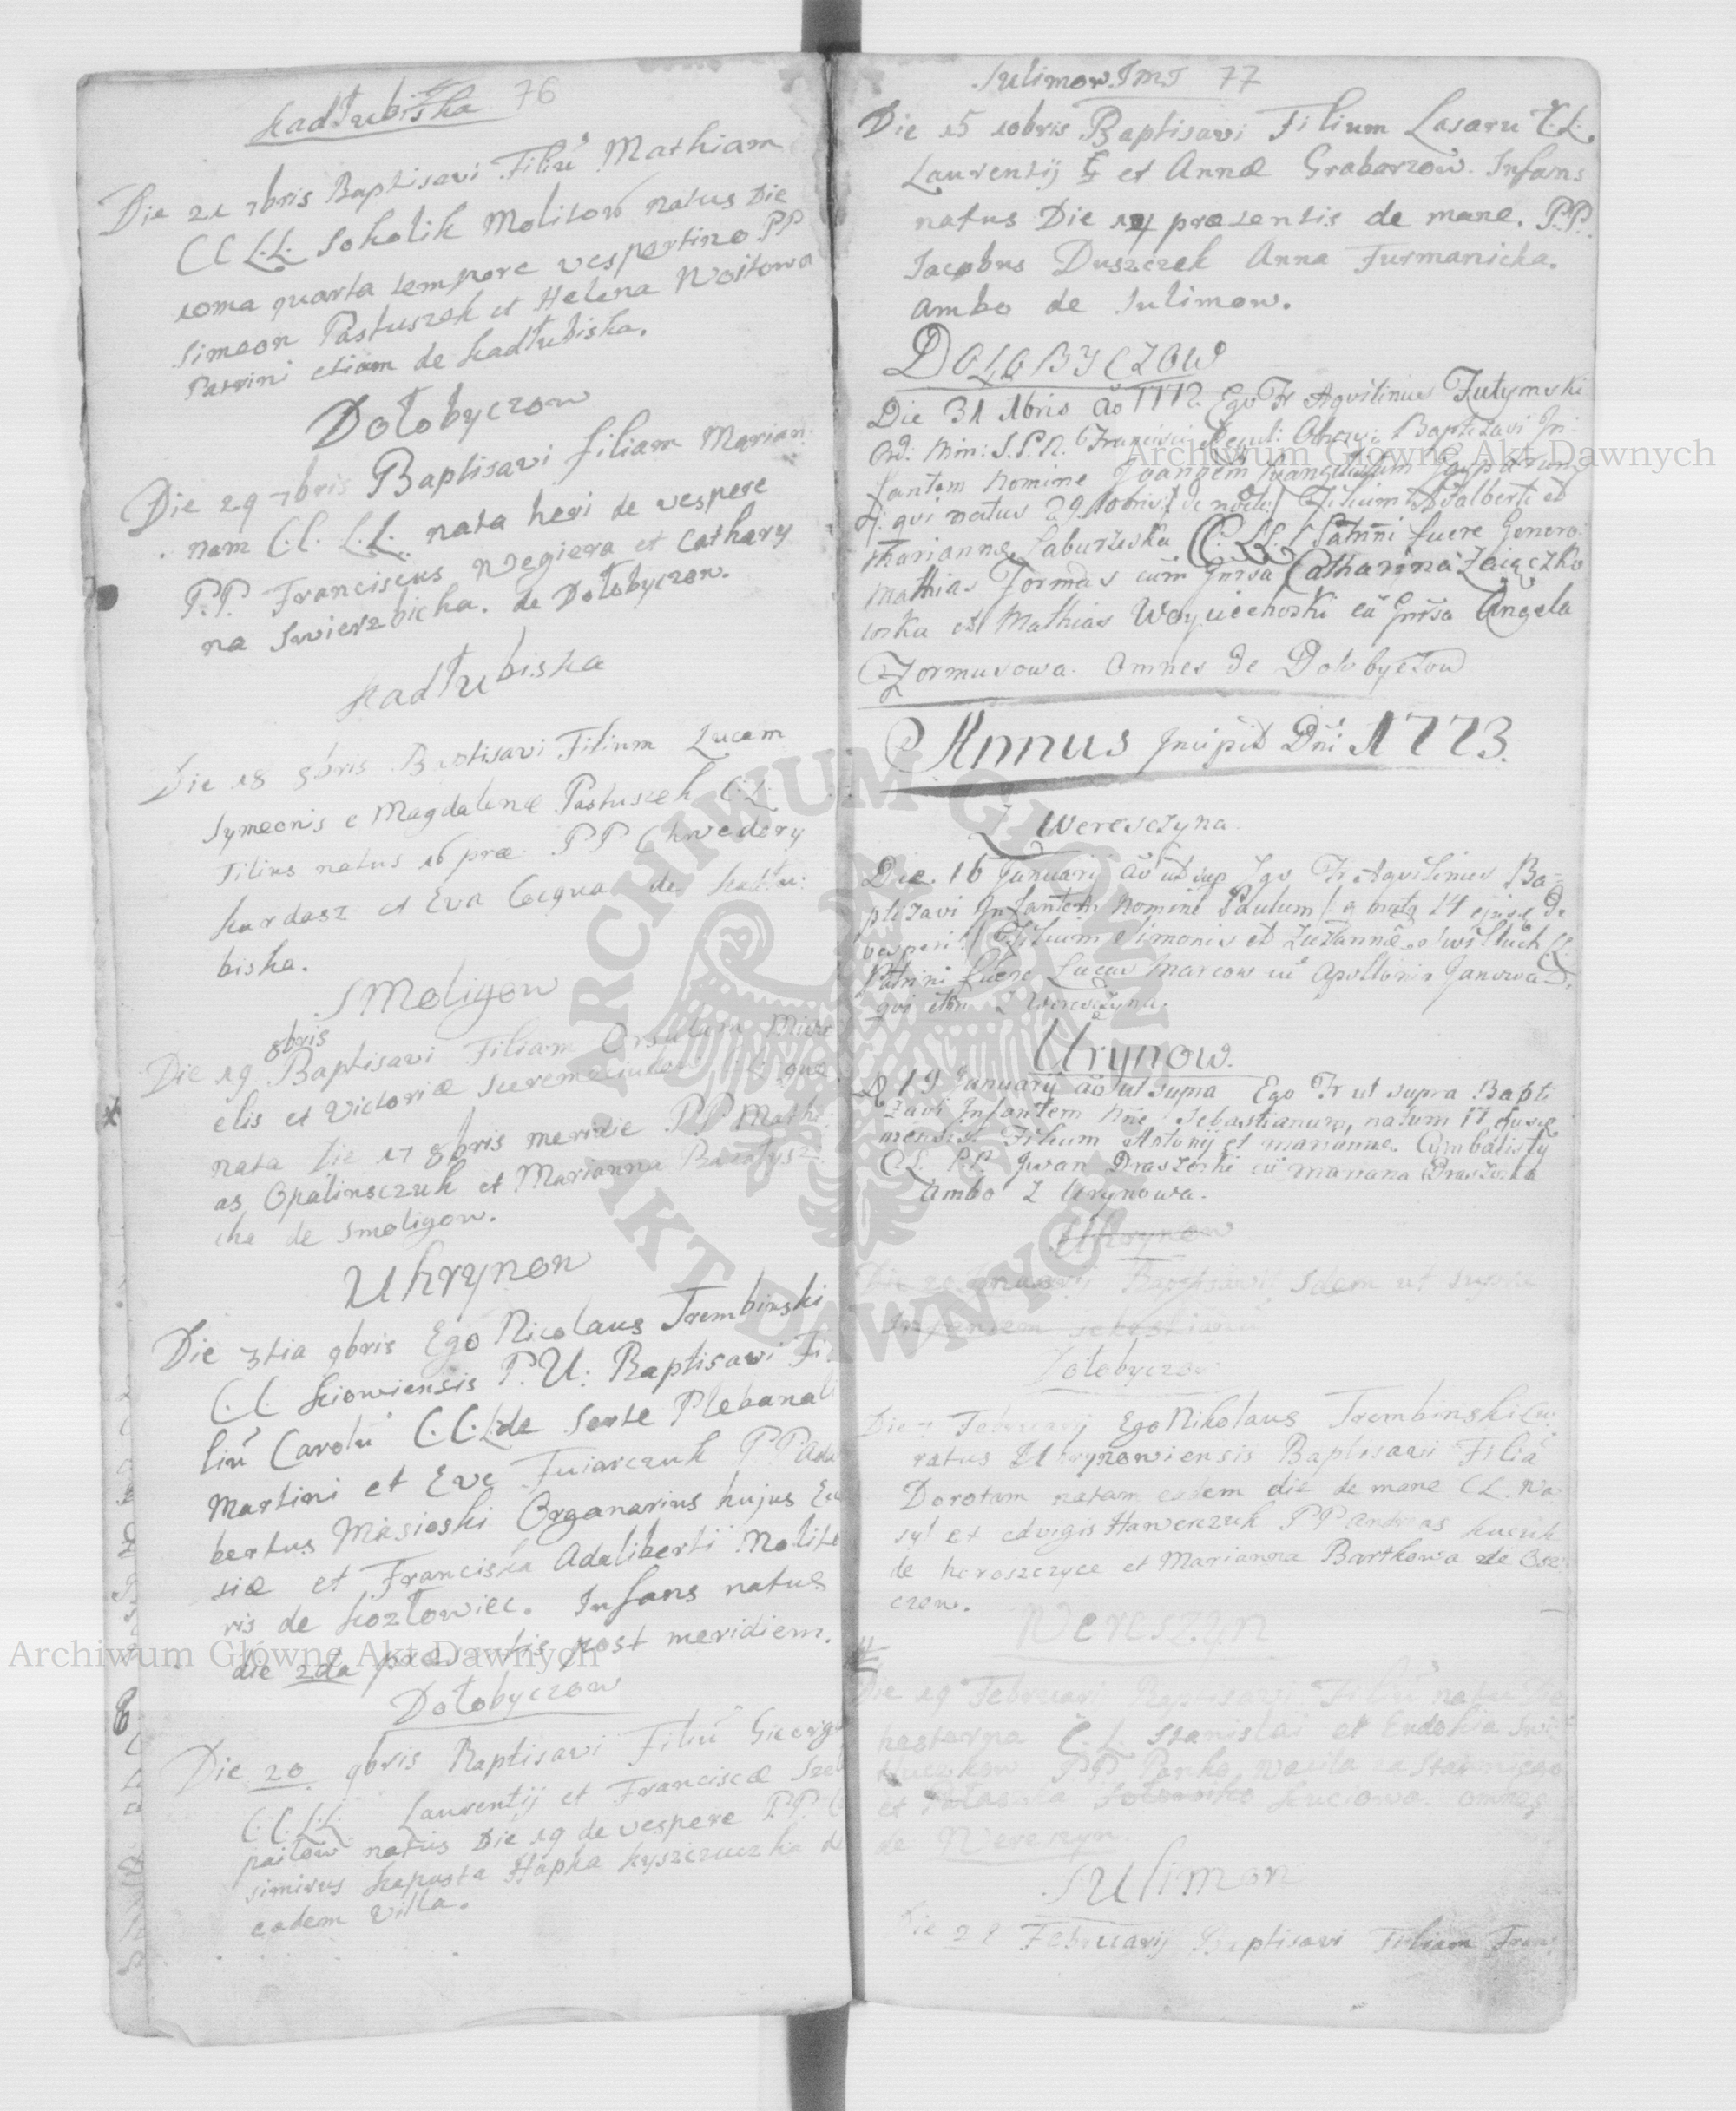 Kadłubiska 76
Die 21 7bris Baptisavi Filiũ Mathiam
CC LL. Sokolik Molitow natus Die
10ma quarta tempore vespertino PP
Simeon Pastuszek et Helena Woitowa
Patrini etiam de Kadłubiska.
Dołobyczow
Die 29 7bris Baptisavi filiam Marian:
nam C.C. L.L. nata heri de vespere
P.P. Franciscus Wegiera et Cathary
na Swierzbicka. de Dołobyczow.
Kadłubiska
Die 18 8bris Baptisavi Filium Lucam
Symeonis e Magdalenæ Pastuszek C.L.
Filius natus 16 præ. PP Chwedery
Kardasz et Eva Cocqua de Kadłu:
biska.
Smoligow
8bris
Die 19 Baptisavi Filiam Orsulam Micha
elis et Victoriæ quæ
nata Die 17 8bris meridie PP Mathi:
as Opalinsczuk et Marianna
cha de Smoligow.
Uhrynow
Die 3tia 9bris Ego Nicolaus Trembinski
C.C. Kiowiensis P.U: Baptisavi Fi:
liũ Carolũ C.C.L. de Sorte Plebanali
Martini et Evę Fuiarczuk PP Adal
bertus Masioski Organarius hujus Ecc
siæ et Franciska Adaliberti Molito
ris de Kozłowiec. Infans natus
die 2da præsentis post meridiem.
Dołobyczow
Die 20 9bris Baptisavi Filiũ Georgi
C.C.L.L. Laurentij et Franciscæ
natus Die 19 de vespere P.P.
simirus Kapusta Hapka Kyszczuczka de
eadem Villa.
Sulimow JMJ 77
Die 15 10bris Baptisavi Filium Lasaru C.L.
Laurentij et Annæ Grabarzow. Infans
natus Die præsentis de mane. P.P.
Jacobus Duszczek Anna Furmanicka.
Ambo de Sulimow.
DOŁOBYCZOW
Die 31 Xbris Aõ 1772 Ego Fr Aqvilinus Zutymski
Ord: Min: S.P.N. Francisci Baptizavi In:
fantem Nomine Joannem Evangelistam
qui natus 29 10bris / de nocte / Filium Adalberti et
Mariannę Laburzewka C. LL. Patrini fuere Generos:
Mathias Zormas cum Gnrsa Catharina Zaięczko
woska et Mathias Woyciechoski cũ Gnrsa Angela
Zormusowa. Omnes de Dołobyczow
Annus Incipit Dñi 1773.
Z Wereszczyna.
Die. 16 Januarij aõ ut sup Ego Fr Aqvilinus Ba=
ptizavi Infantem Nomine Paulum / natq 14 ejusq de
vesperi / Filium Simonis et Zuzannæ C.
Patrini fuere Lucas Marcow cũ Apollonia Janowa L.
qui Z Wereszczyna.
Urynow.
D 19 January aõ ut supra Ego Fr ut supra Bapti
zavi Infantem Nne Sebastianum, natum 17 ejusq
mensis. Filium Antonij et Mariannæ Cymbalisty
C.L. P.P. Jwan Draszoski cũ Mariana Draszoska
Ambo Z Urynowa.
Uhrynow
Die 20 Januarij Baptisavit Idem ut supra
Infantem Sebastianũ
Dołobyczow
Die Februarij Ego Nikolaus Trembinski Cu:
ratus Uhrynoviensis Baptisavi Filiã
Dorotam natam eadem die de mane C L. Wa
syl et Edvigis Hawerczuk PP Andreas Kuczik
de Horoszczyce et Marianna Bartkowa de Ose
czow.
Wereszyn
Die 19 Februari Baptisavi Filiũ natũ
hesterna C. L. Stanislai et Eudokia
PP Panko
et Kuciowa. omnes
de Wereszyn
Sulimow
Die Februarij Baptisavi Filiam Fran
Archiwum Główne Akt Dawnych
Archiwum Główne Akt Dawnych
ARCHIWUM GŁÓWNE
AKT DAWNYCH